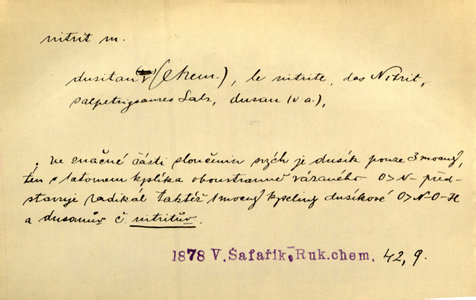 nitrit m.
dusitan (chem.), le nitrite, das Nitrit,
salpetrigsaures Salz, dusan (va.),
. ve značné části sloučenin svých je dusík pouze 3mocný,
ten s 1atomem kyslíka oboustranně vázaného O>N- před-
stavuje radikál taktéž 1mocný kyseliny dusíkové O>N-O-H
a dusanův č nitritův.
1878 V. Šafařík, Ruk. chem. 42, 9.